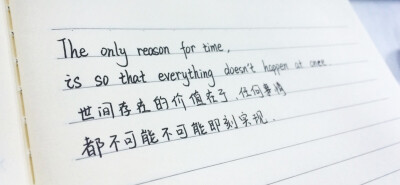 The only reason for time,
is so that everything doesn't happen at once
世间存在的价值在于,任何事情
都不可能不可能即刻实现.